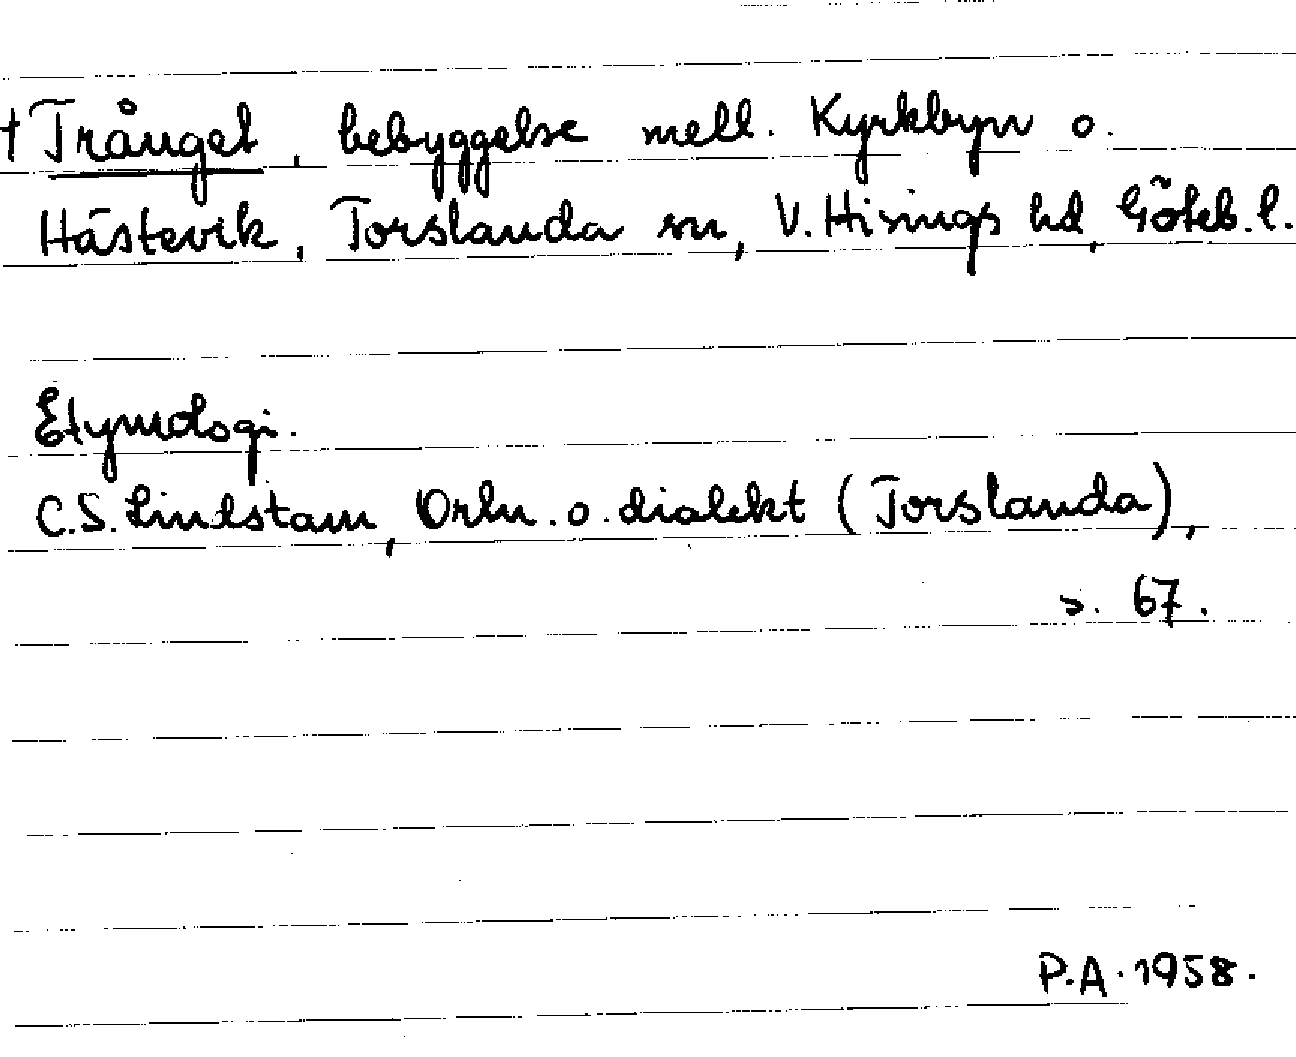 † Trånget, bebyggelse mell. Kyrkbyn o.
Hästevik, Torslanda sn, V. Hisings hd, Göteb. l.
Etymologi.
C.S. Lindstam, Ortn. o. dialekt (Torslanda),
s. 67.
P.A. 1958.